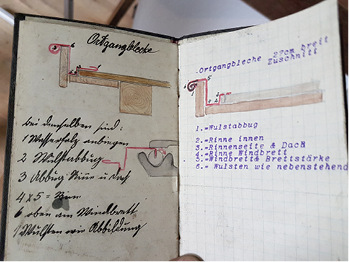 Ortgangblecke
bei denselben sind:
1 Wasserfalz anbiegen
2 Wulstabbug
3 Abbug Rinne u. Dach
4 x 5 = Rinne
6 oben am Windbrett
Wulsten wie Abbildung
Ortgangbleche 27cm breit
Zuschnitt
1.=Wulstabbug
2.=Rinne innen
3.=Rinnenseite & Dach
4.=Rinne Windbrett
5.=Windbrett& Brettstärke
6.=Wulsten wie nebenstehend